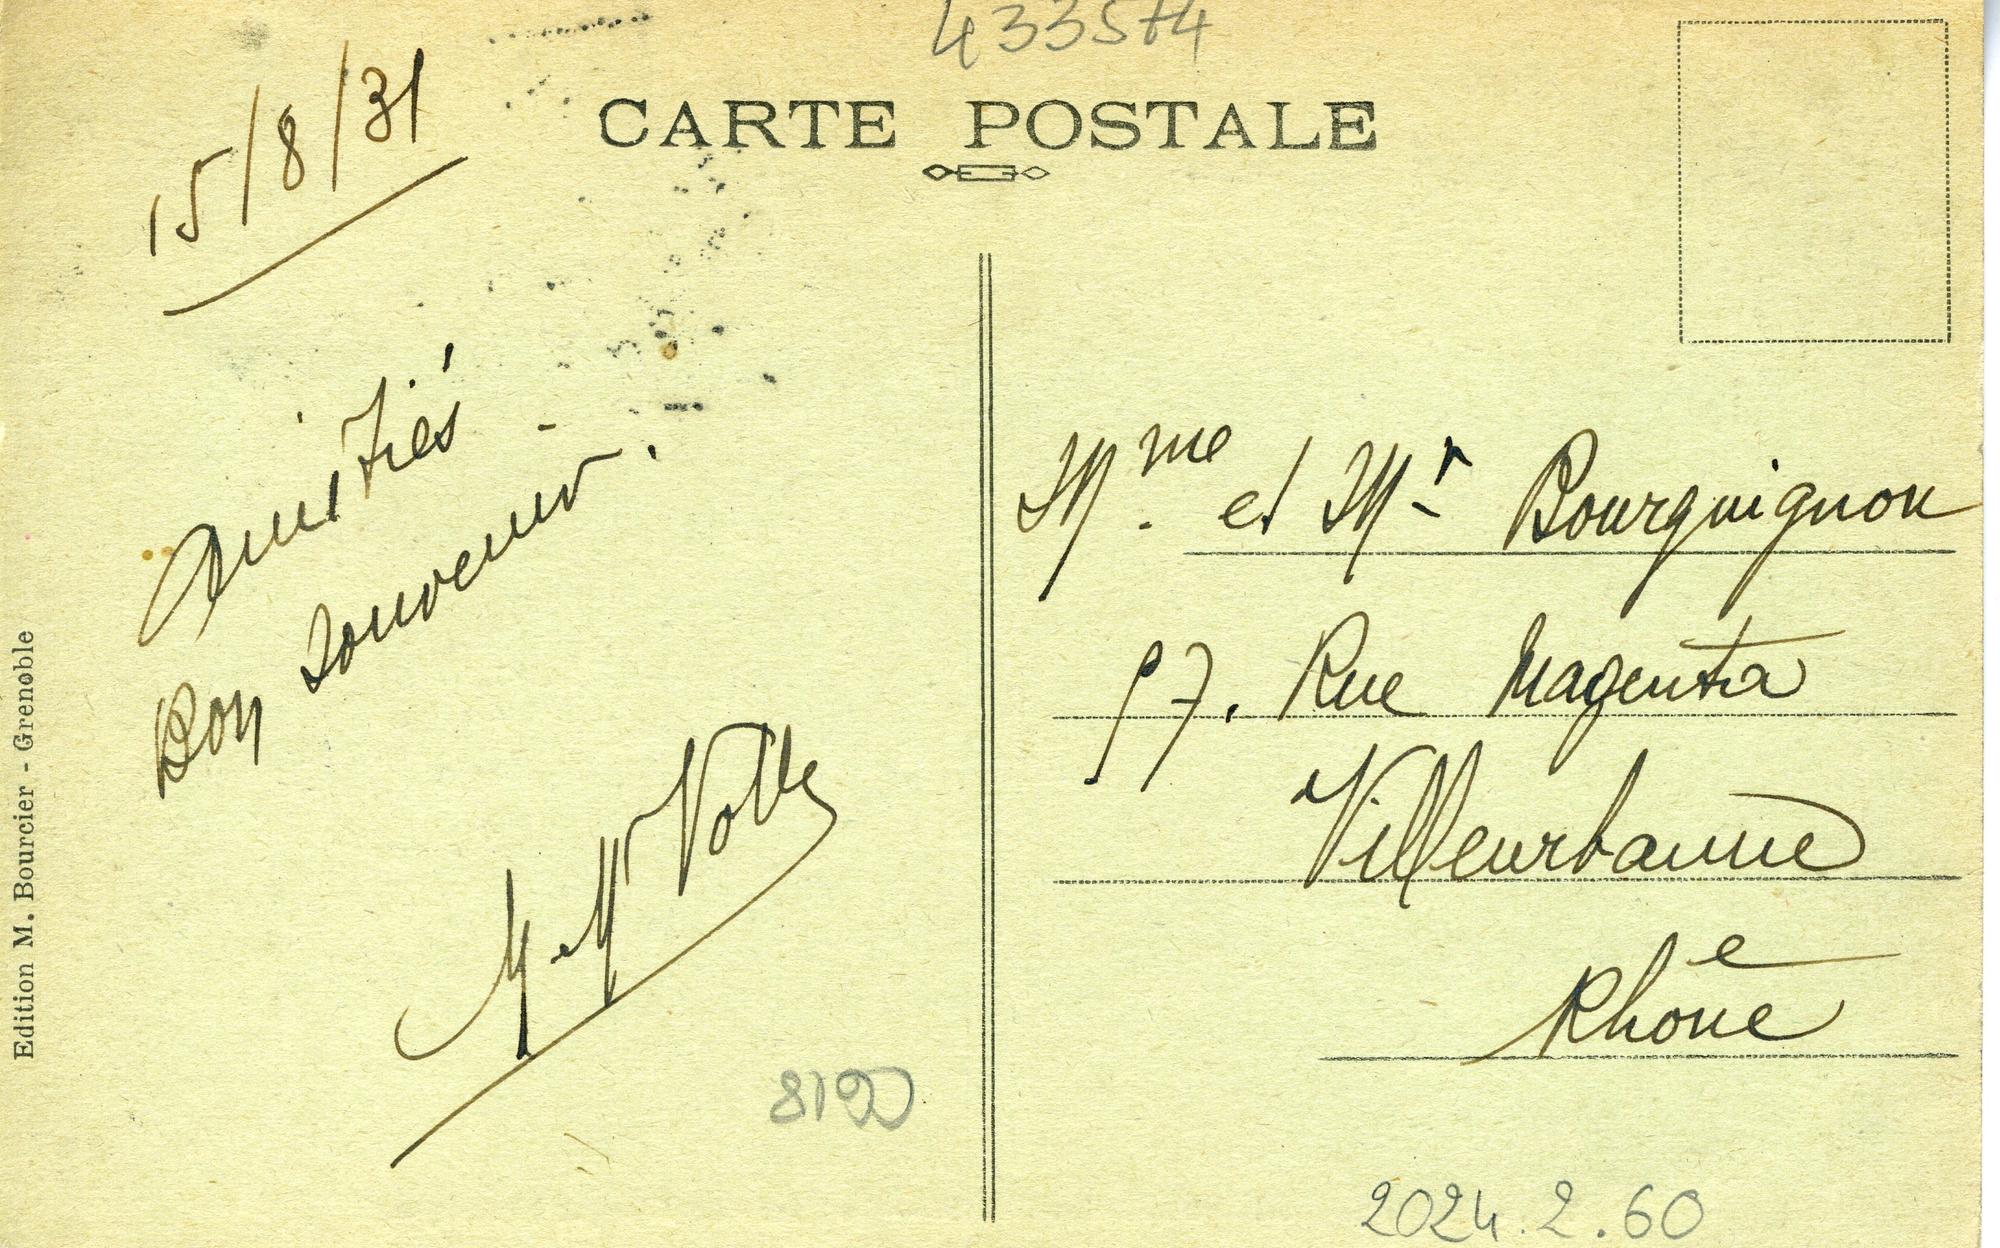 433574
CARTE POSTALE
15/8/31
Amitiés
Bon souvenir.
Mme et Mr Bourguignon
57. Rue Magenta
Villeurbanne
Rhône
2024.2.60
Edition M. Bourcier - Grenoble